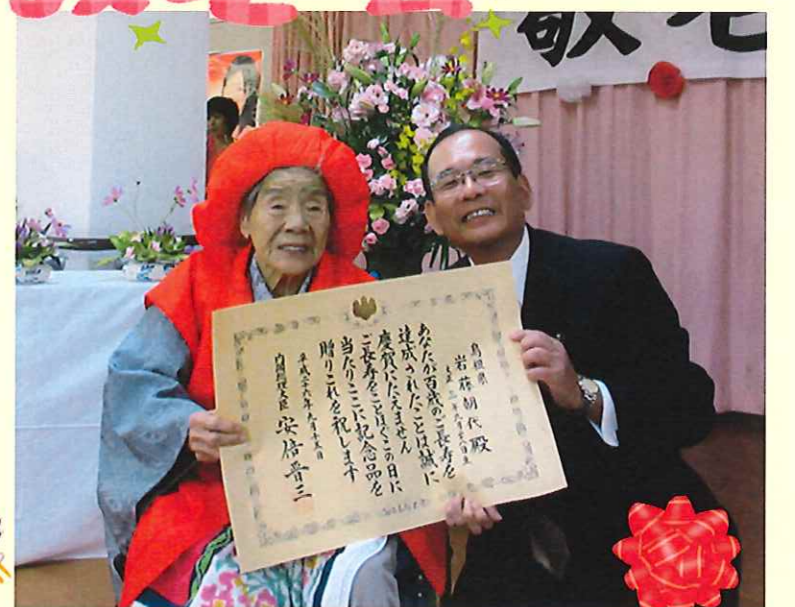 敬老
島根県
岩藤朝代殿
あなたが百歳のご長寿を
達成されたことは誠に
慶賀にたえません
ご長寿をことほぐこの日に
当たりここに記念品を
贈りこれを祝します
平成二十六年九月十五日
内閣総理大臣 安倍晋三